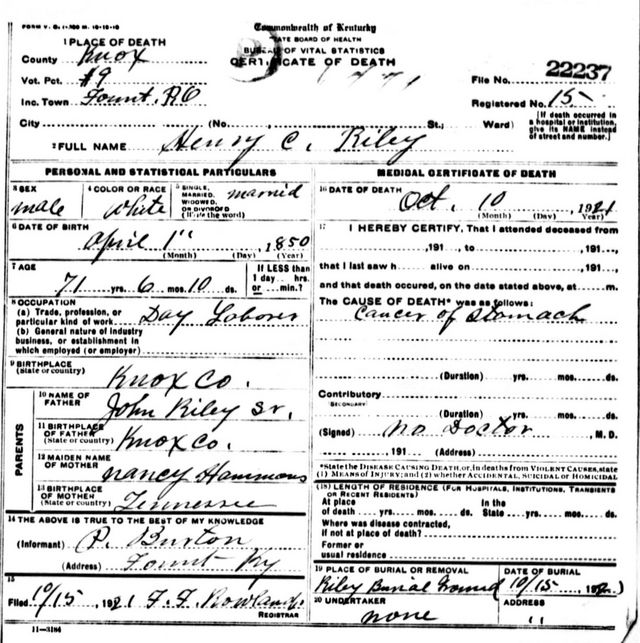 FORM V. S. 1-
Commonwealth of Kentucky
STATE BOARD OF HEALTH
BUREAU OF VITAL STATISTICS
CERTIFICATE OF DEATH
1 PLACE OF DEATH
County Knox
Vot. Pct. #9
Inc. Town Fount, RO
File No. 22237
Registered No. 15
City (No. , St.; Ward)
(If death occurred in a hospital or institution, give its NAME instead of street and number.)
2 FULL NAME Henry C. Riley
PERSONAL AND STATISTICAL PARTICULARS
3 SEX male
4 COLOR OR RACE White
5 SINGLE, MARRIED, WIDOWED, OR DIVORCED (Write the word) married
6 DATE OF BIRTH April 1", 1850
(Month) (Day) (Year)
7 AGE 71 yrs. 6 mos. 10 ds.
If LESS than 1 day ...hrs. or ...min.?
8 OCCUPATION
(a) Trade, profession, or particular kind of work Day Laborer
(b) General nature of industry business, or establishment in which employed (or employer)
9 BIRTHPLACE (State or country) Knox Co.
PARENTS
10 NAME OF FATHER John Riley Sr.
11 BIRTHPLACE OF FATHER (State or country) Knox Co.
12 MAIDEN NAME OF MOTHER Nancy Hammons
13 BIRTHPLACE OF MOTHER (State or country) Tennessee
14 THE ABOVE IS TRUE TO THE BEST OF MY KNOWLEDGE
(Informant) P. Burton
(Address) Fount Ky
15
Filed 10/15 1921 F. F. Rowland
REGISTRAR
11-3184
MEDICAL CERTIFICATE OF DEATH
16 DATE OF DEATH Oct. 10, 1921
(Month) (Day) (Year)
17 I HEREBY CERTIFY, That I attended deceased from
, 191..., to , 191...,
that I last saw h alive on , 191...,
and that death occured, on the date stated above, at m.
The CAUSE OF DEATH* was as follows:
Cancer of Stomach
(Duration) yrs. mos. ds.
Contributory
SECONDARY
(Duration) yrs. mos. ds.
(Signed) No Doctor, M. D.
, 191 (Address)
*State the DISEASE CAUSING DEATH, or, in deaths from VIOLENT CAUSES, state (1) MEANS OF INJURY; and (2) whether ACCIDENTAL, SUICIDAL or HOMICIDAL
(18) LENGTH OF RESIDENCE (FOR HOSPITALS, INSTITUTIONS, TRANSIENTS OR RECENT RESIDENTS)
At place of death yrs. mos. ds. In the State yrs. mos. ds.
Where was disease contracted, if not at place of death?
Former or usual residence
19 PLACE OF BURIAL OR REMOVAL Riley Burial Ground
DATE OF BURIAL 10/15, 192
20 UNDERTAKER none
ADDRESS "